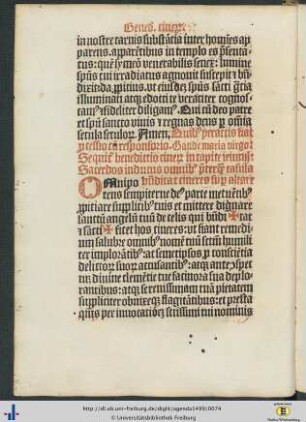 Bened. cinerum
in nostre carnis substātia inter homīes ap
parens. apparētibus in templo es p̄senta-
tus: quē symeō venerabilis senex: lumine
spūs tui irradiatus agnouit suscepit ⁊ bn̄-
dixit: da, ppitius. vt eiusdē spūs sacti gr̄tia
illuminati atqʒ edocti te veraciter cognos-
camꝰ ⁊ fideliter diligamꝰ. Qui cū deo patre
et spū sancto viuis ⁊ regnas deus p omīa
secula seculoꝝ. Amen. Quibꝰ peractis fiat
ꝓcessio cū responsorio. Gaude maria virgo:
Sequit᷑ benedictio cinerū in capite ieiunij:
Sacerdos indutus omnibꝰ preter casula
bn̄dicat cineres sup altare
OMnipotens sempiterne deꝰ parce metuētibꝰ
ꝓpitiare supplicibꝰ tuis et mittere digneris
sanctū angelū tuū de celis qui bn̄di ✠ cat
⁊ sācti ✠ ficet hos cineres: vt siant remedi
um salubre omnibꝰ nomē tuū sctm̄ humili
ter imploratibꝰ: ac semetipsos ꝓ conscietia
delictoꝝ suoꝝ accusantibꝰ: atqʒ ante ꝯspec
tū diuine clemētie tue facinora sua deplo-
rantibus: atqʒ serenissimam tuā pietatem
suppliciter obnixeqʒ flagitantibus: et presta
quis per inuocationeʒ sctissimi tui nominis
http://dl.ub.uni-freiburg.de/diglit/agenda1499/0074
© Universitätsbibliothek Freiburg